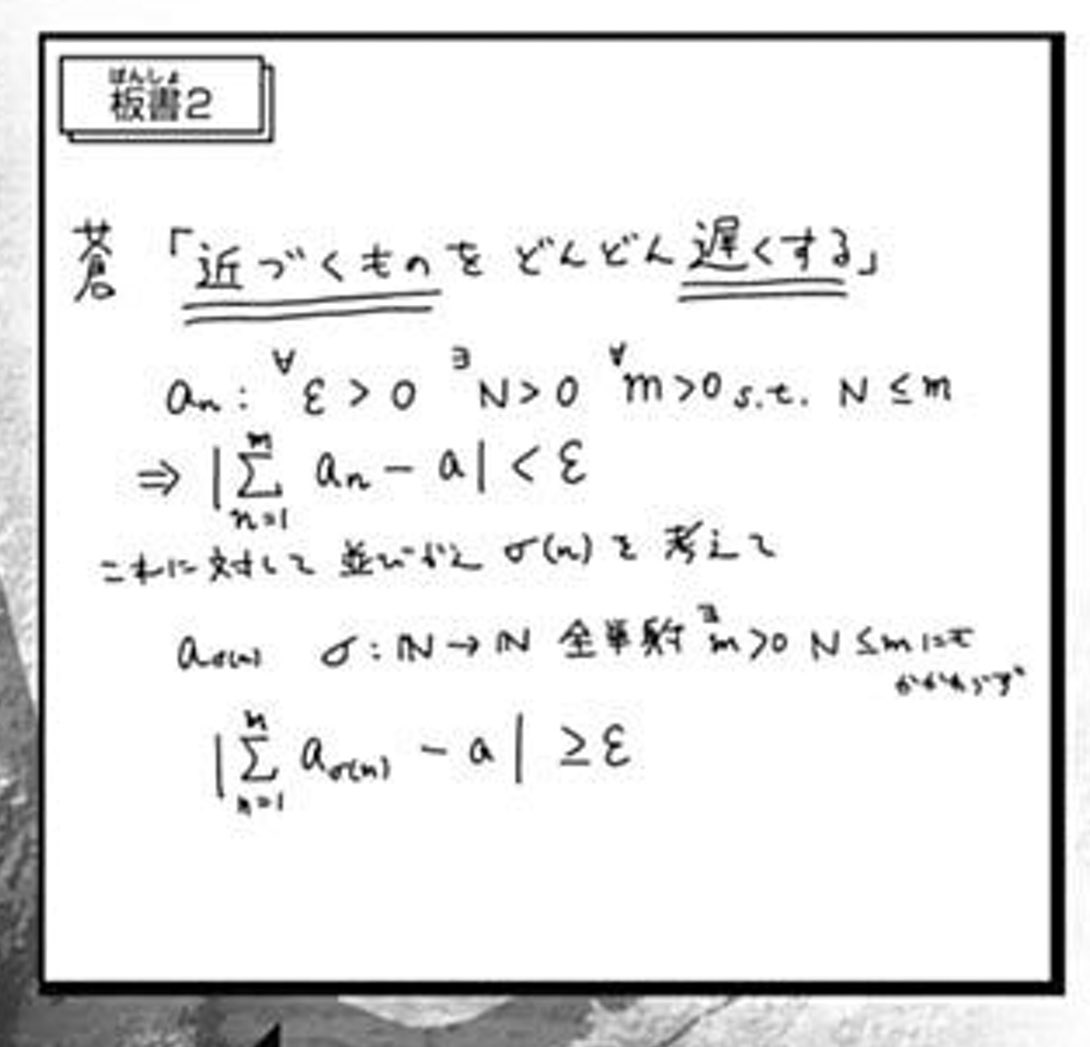 ばんしょ
板書2
蒼 「近づくものをどんどん遅くする」
aₙ: ∀ε>0 ∃N>0 ∀m>0 s.t. N≤m
⇒ |∑ₙ₌₁ᵐ aₙ − a| < ε
これに対して並びかえ σ(n) を考えて
a_σ(n) σ:ℕ→ℕ 全単射 ∃m>0 N≤mにも
かかわらず
|∑ₙ₌₁ⁿ a_σ(n) − a| ≥ε